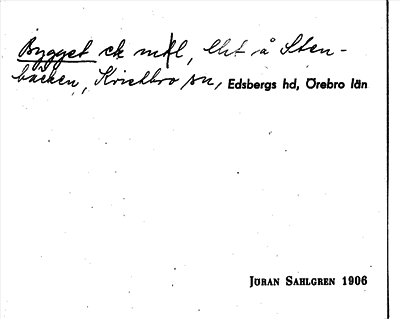 Bygget ek mfl, Elst å Sten-
bäcken, Kvistbro sn, Edsbergs hd, Örebro län
JÖRAN SAHLGREN 1906